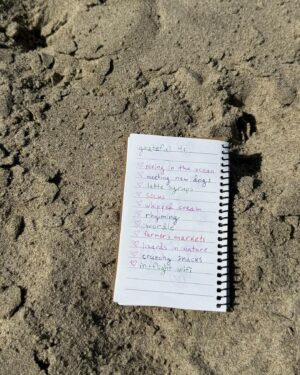 grateful 4:
♡ being in the ocean
♡ meeting new dogs
♡ latte syrups
♡ socks
♡ whipped cream
♡ rhyming
♡ wordle
♡ farmer's markets
♡ lizards in nature
♡ crunchy snacks
♡ in-flight wifi